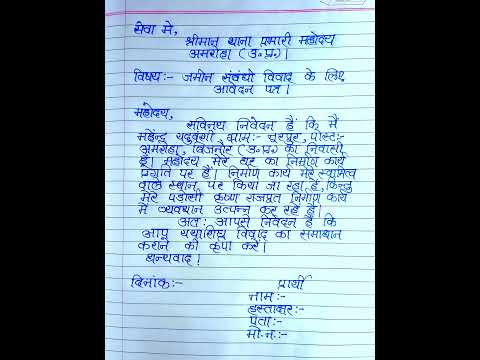 सेवा मे,
श्रीमान् थाना प्रभारी महोदय
अमरोहा (उ०प्र०)
विषय:- जमीन संबंधी विवाद के लिए
आवेदन पत्र।
महोदय,
सविनय निवेदन है कि मै
महेन्द्र यदुवंशी ग्राम:- नूरपुर, पोस्ट:-
अमरोहा, बिजनौर (उ०प्र०) का निवासी
हूँ। महोदय मेरे घर का निर्माण कार्य
प्रगति पर है। निर्माण कार्य मेरे स्वामित्व
वाले स्थान पर किया जा रहा है, किन्तु
मेरे पड़ोसी कृष्ण राजपूत निर्माण कार्य
मे व्यवधान उत्पन्न कर रहे हैं।
अत: आपसे निवेदन है कि
आप यथाशीघ्र विवाद का समाधान
कराने की कृपा करें।
धन्यवाद।
दिनांक:- प्रार्थी
नाम:-
हस्ताक्षर:-
पता:-
मो.न.:-